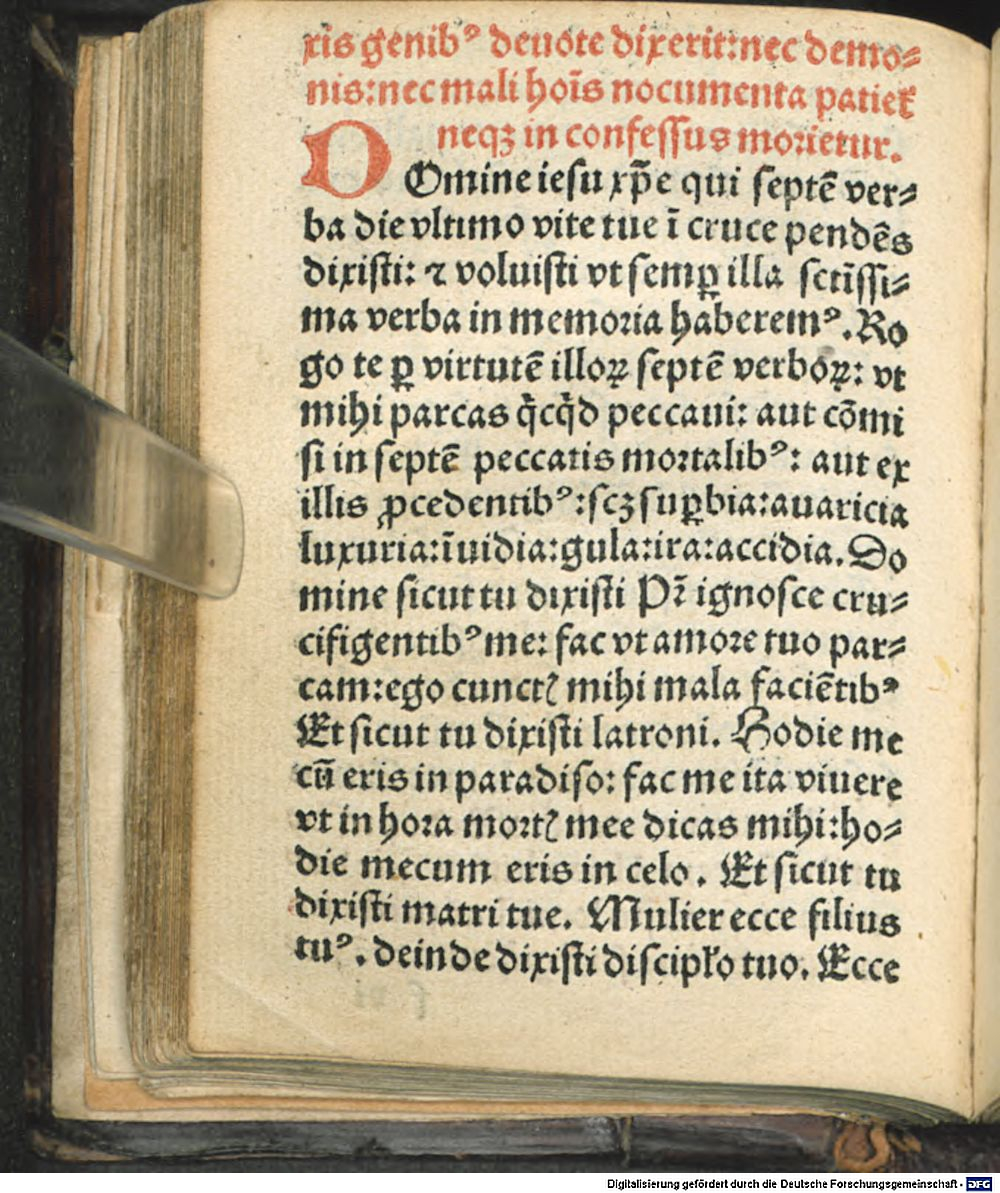 xis genibꝰ deuote dixerit: nec demo⸗
nis: nec mali hoīs nocumenta patiet᷑
neqꝫ in confessus morietur.
DOmine iesu xp̄e qui septē ver⸗
ba die vltimo vite tue ī cruce pendēs
dixisti: ⁊ voluisti vt semꝑ illa sctīssi⸗
ma verba in memoria haberemꝰ. Ro
go te ꝑ virtutē illoꝝ septē verboꝝ: vt
mihi parcas q̄cq̄d peccaui: aut cōmi
si in septē peccatis mortalibꝰ: aut ex
illis ꝓcedentibꝰ: scꝫ suꝑbia: auaricia
luxuria: īuidia: gula: ira: accidia. Do
mine sicut tu dixisti Pr̄ ignosce cru⸗
cifigentibꝰ me: fac vt amore tuo par⸗
cam: ego cunctꝭ mihi mala faciētibꝰ
Et sicut tu dixisti latroni. Hodie me
cū eris in paradiso: fac me ita viuere
vt in hora mortꝭ mee dicas mihi: ho⸗
die mecum eris in celo. Et sicut tu
dixisti matri tue. Mulier ecce filius
tuꝰ. deinde dixisti discipło tuo. Ecce
Digitalisierung gefördert durch die Deutsche Forschungsgemeinschaft - DFG